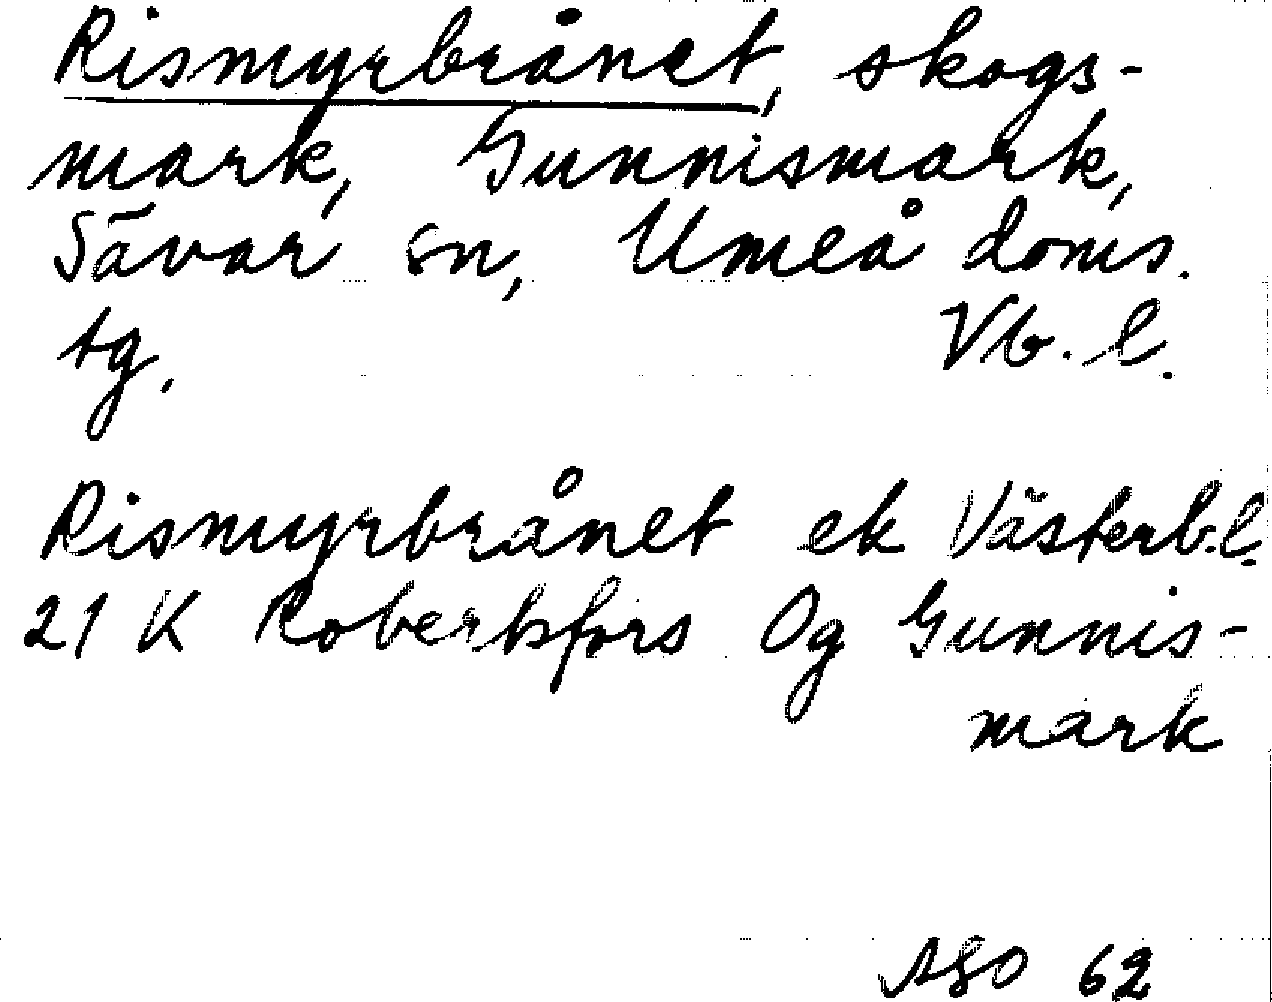 Rismyrbrånet, skogs-
mark, Gunnismark,
Sävar sn, Umeå doms.
tg. Vb. l.
Rismyrbrånet ek Västerb.l.
21 K Robertsfors Og Gunnis-
mark
62